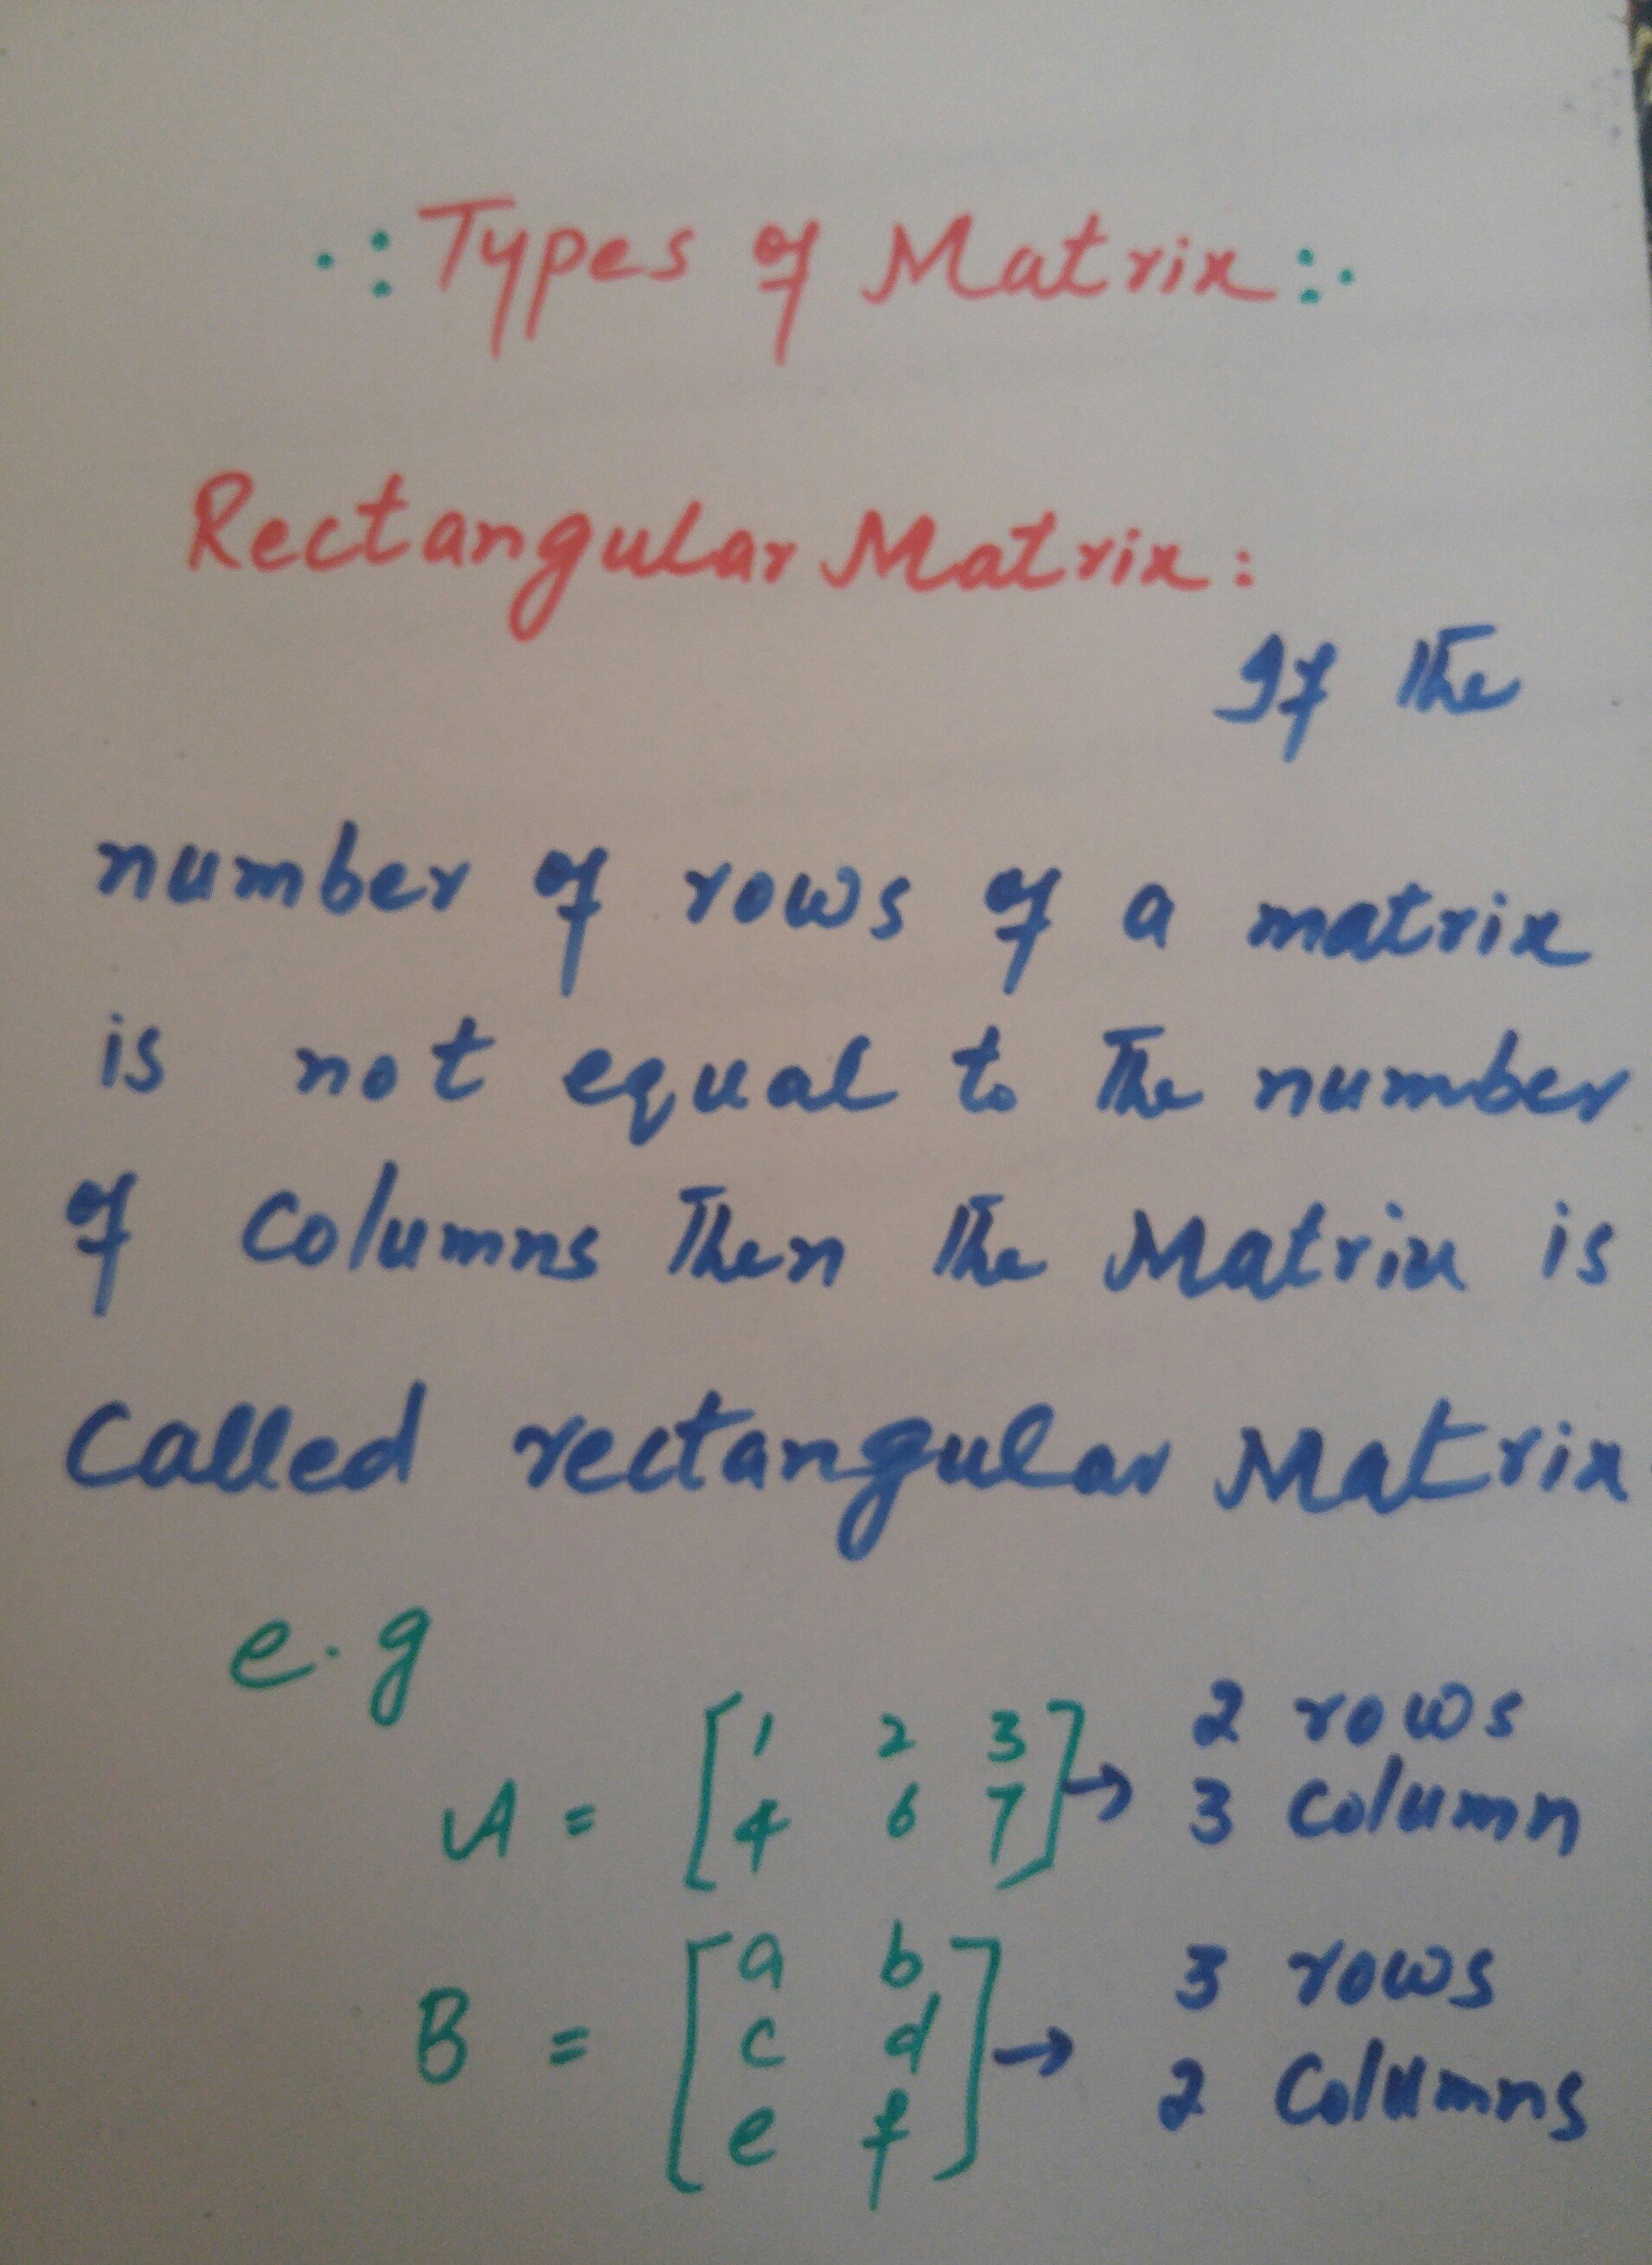 .:Types of Matrix:.
Rectangular Matrix:
If the
number of rows of a matrix
is not equal to the number
of Columns Then the Matrix is
Called rectangular Matrix.
e.g
A = [1 2 3
4 6 7] → 2 rows
3 Column
B = [a b
c d
e f] → 3 rows
2 Columns